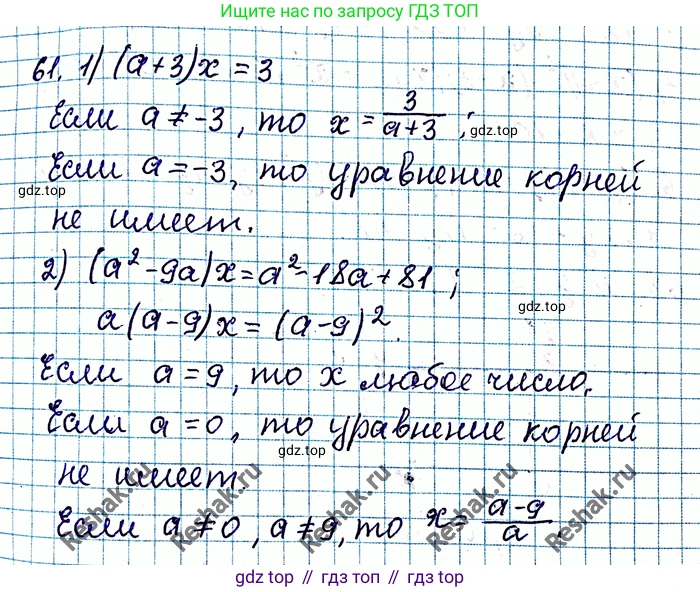 Ищите нас по запросу ГДЗ ТОП
61. 1) (a+3)x = 3
Если a ≠ -3, то x = 3/(a+3);
gdz.top
Если a = -3, то уравнение корней
gdz.top
не имеет.
2) (a² - 9a)x = a² - 18a + 81;
a(a-9)x = (a-9)².
gdz.top
Если a = 9, то x любое число.
Если a = 0, то уравнение корней
gdz.top
не имеет.
Если a ≠ 0, a ≠ 9, то x = (a-9)/a
Reshak.ru
Reshak.ru
Reshak.ru
Reshak.ru
gdz top // гдз топ // gdz.top